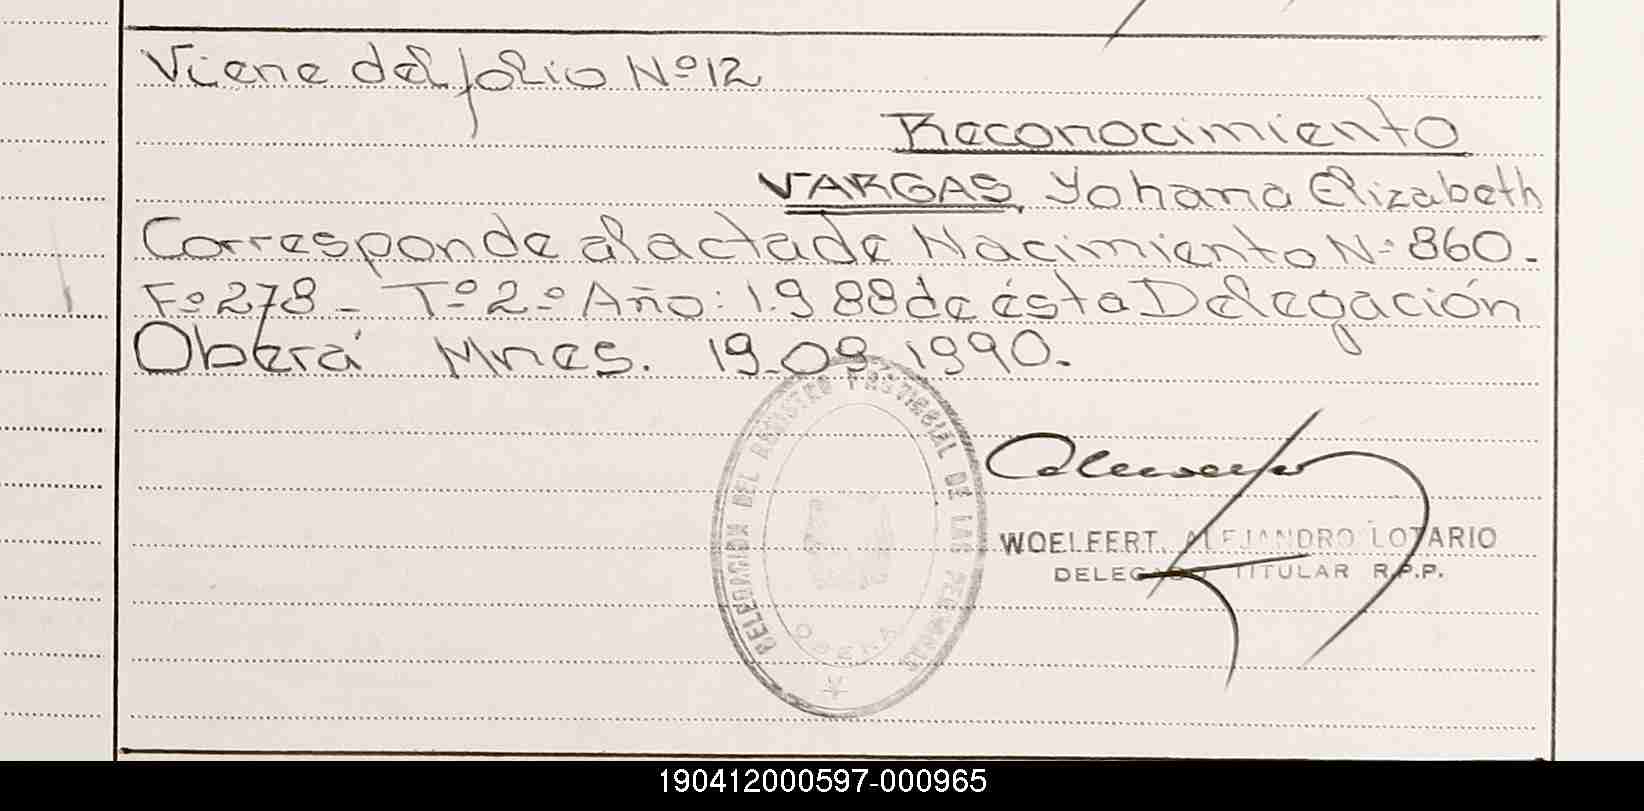 Viene del folio Nº 12
Reconocimiento
VARGAS, Yohana Elizabeth
Corresponde al acta de Nacimiento N: 860.-
Fº 278 - Tº 2º Año: 1.988 de ésta Delegación
Oberá Mnes. 19.09.1990.-
DELEGACION DEL REGISTRO PROVINCIAL DE LAS PERSONAS
OBERA
WOELFERT ALEJANDRO LOTARIO
DELEGADO TITULAR R.P.P.
190412000597-000965